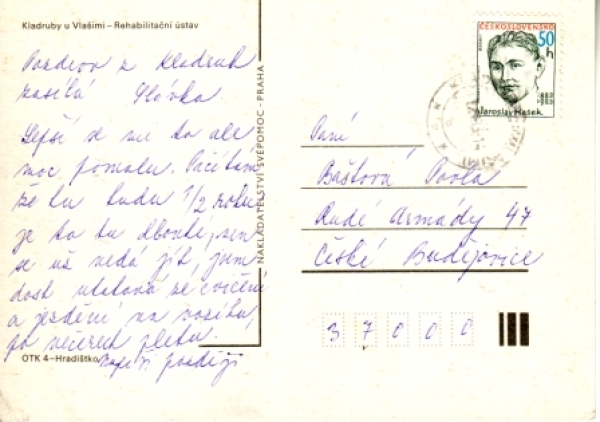 Kladruby u Vlašimi – Rehabilitační ústav
Pozdrav z Kladrub
zasílá Slávka.
Lepší se mi to ale
moc pomalu. Počítám
že tu budu 1/2 roku
je to tu dlouhé, ven
se už nedá jít, jsem
dost utahaná ze cvičení
a ježdění na vozíku,
po večerech pletu.
Napíši později
OTK 4–Hradištko
NAKLADATELSTVÍ SVÉPOMOC - PRAHA
ČESKOSLOVENSKO
50 h
1883
1983
Jaroslav Hašek
Paní
Baštová Pavla
Rudé Armády 47
České Budějovice
37000